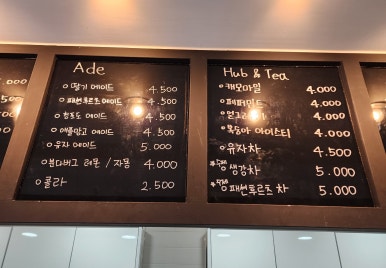 Ade
딸기 에이드 4.500
패션후르츠 에이드 4.500
청포도 에이드 4.500
애플망고 에이드 4.500
유자 에이드 5.000
붐다버그 레몬 / 자몽 4.000
콜라 2.500
Hub & Tea
캐모마일 4.000
페퍼민트 4.000
얼그레이 4.000
복숭아 아이스티 4.000
유자차 4.500
생강차 5.000
패션후르츠 차 5.000